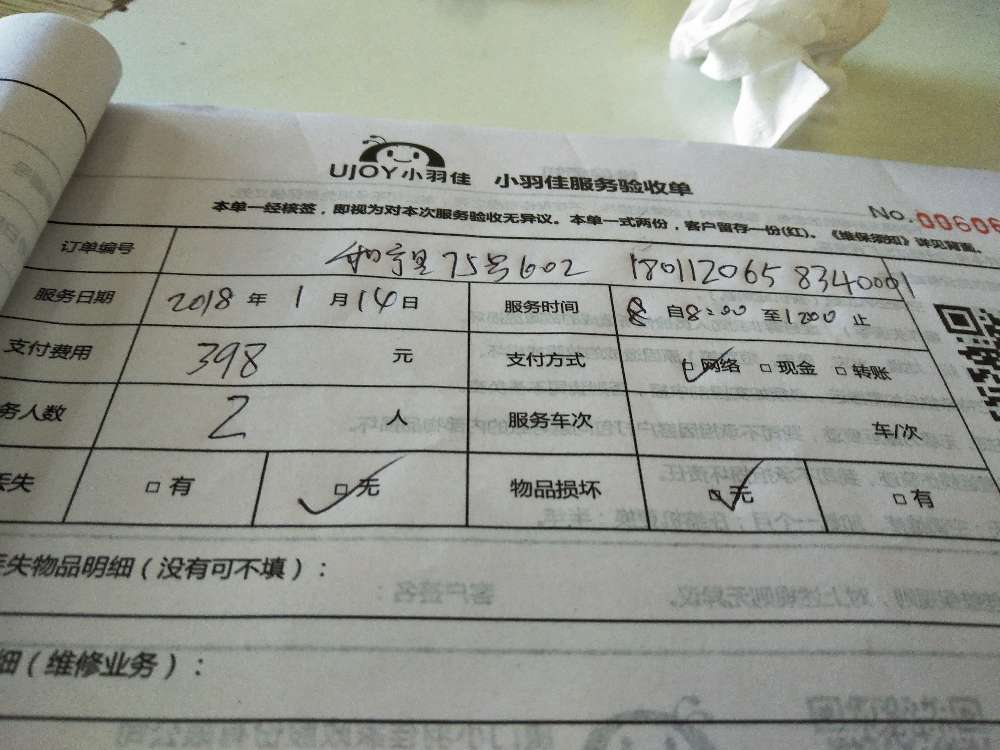 UJOY小羽佳 小羽佳服务验收单
No.00606
本单一经核签，即视为对本次服务验收无异议。本单一式两份，客户留存一份(红)。《维保须知》详见背面。
订单编号 和宁里75号602 180112065 8340001
服务日期 2018 年 1 月 14 日 服务时间 自8:00 至1200 止
支付费用 398 元 支付方式 □网络 □现金 □转账
务人数 2 人 服务车次 车/次
丢失 □有 □无 物品损坏 □无 □有
丢失物品明细（没有可不填）：
细（维修业务）：